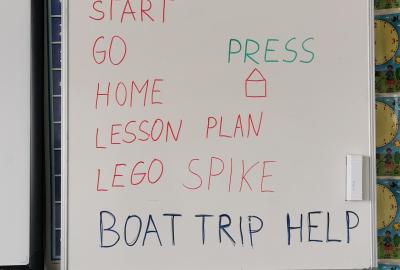 START
GO PRESS
HOME
LESSON PLAN
LEGO SPIKE
BOAT TRIP HELP